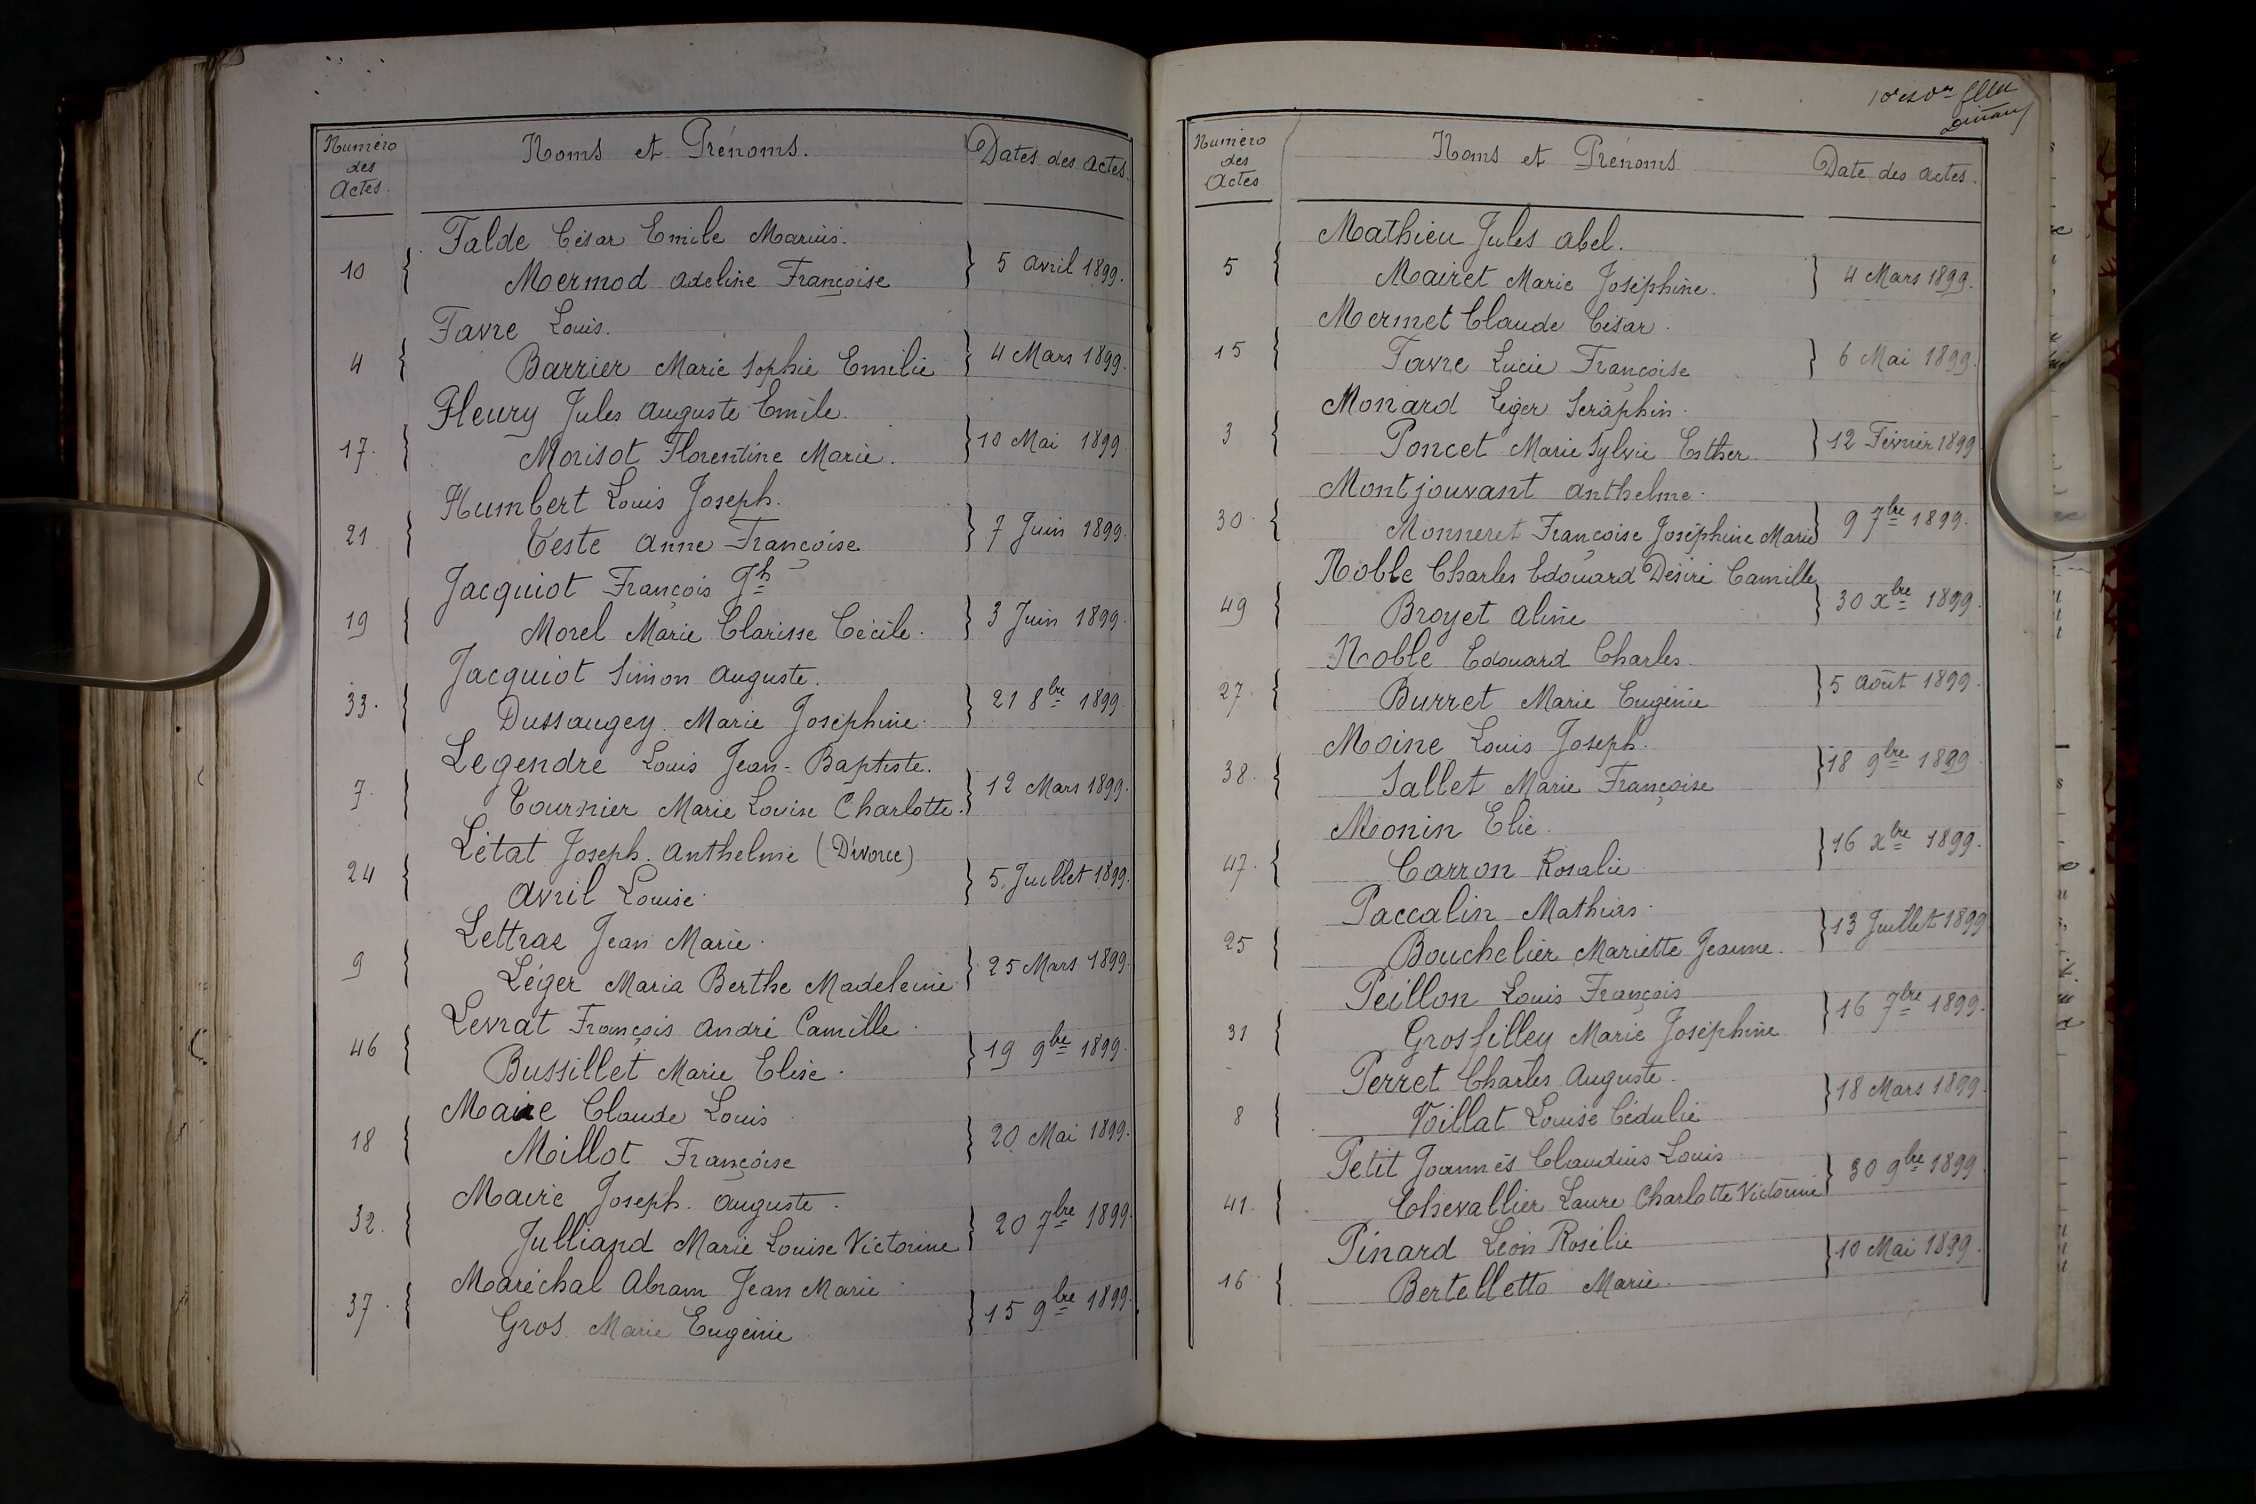 Numéro des Actes Noms et Prénoms. Dates des actes.
Falde César Emile Marius.
10 Mermod Adeline Françoise 5 Avril 1899.
Favre Louis.
4 Barrier Marie Sophie Emilie 4 Mars 1899.
Fleury Jules Auguste Emile.
17. Morisot Florentine Marie. 10 Mai 1899
Humbert Louis Joseph.
21 Teste Anne Françoise 7 Juin 1899.
Jacquiot François Jh
19 Morel Marie Clarisse Cécile. 3 Juin 1899.
Jacquiot Simon Auguste.
33. Dussaugey Marie Joséphine. 21 8bre 1899.
Legendre Louis Jean-Baptiste.
7. Tournier Marie Lovise Charlotte. 12 Mars 1899.
Létat Joseph. Anthelme (Divorce)
24 Avril Louise. 5. Juillet 1899.
Lettraz Jean Marie.
9 Léger Maria Berthe Madeleine 25 Mars 1899.
Levrat François André Camille.
46 Bussillet Marie Elise. 19 9bre 1899.
Maire Claude Louis
18 Millot Françoise 20 Mai 1899.
Maire Joseph. Auguste.
32. Julliand Marie Louise Victorine 20 7bre 1899.
Maréchal Abram Jean Marie
37. Gros Marie Eugénie 15 9bre 1899.
Numéro des Actes Noms et Prénoms Date des actes.
Mathieu Jules Abel.
5 Mairet Marie Joséphine. 4 Mars 1899.
Mermet Claude César.
15 Favre Lucie Françoise 6 Mai 1899.
Monard Léger Séraphin.
3 Poncet Marie Sylvie Esther 12 Février 1899
Montjouvant Anthelme.
30. Monneret Françoise Joséphine Marie 9 7bre 1899.
Noble Charles Edouard Désiré Camille
49 Broyet Aline 30 xbre 1899.
Noble Edouard Charles.
27. Burret Marie Eugénie 5 Août 1899.
Moine Louis Joseph.
38. Sallet Marie Françoise 18 9bre 1899
Monin Elie.
47. Carron Rosalie 16 xbre 1899.
Paccalin Mathias.
25 Bouchelier Mariette Jeanne. 13 Juillet 1899
Peillon Louis François
31 Grosfilley Marie Joséphine 16 7bre 1899.
Perret Charles Auguste.
8 Voillat Louise Cédulie 18 Mars 1899.
Petit Joannès Claudius Louis
41. Chevallier Laure Charlotte Victorine 30 9bre 1899
Pinard Léon Rosélie
16 Bertelletto Marie. 10 Mai 1899.